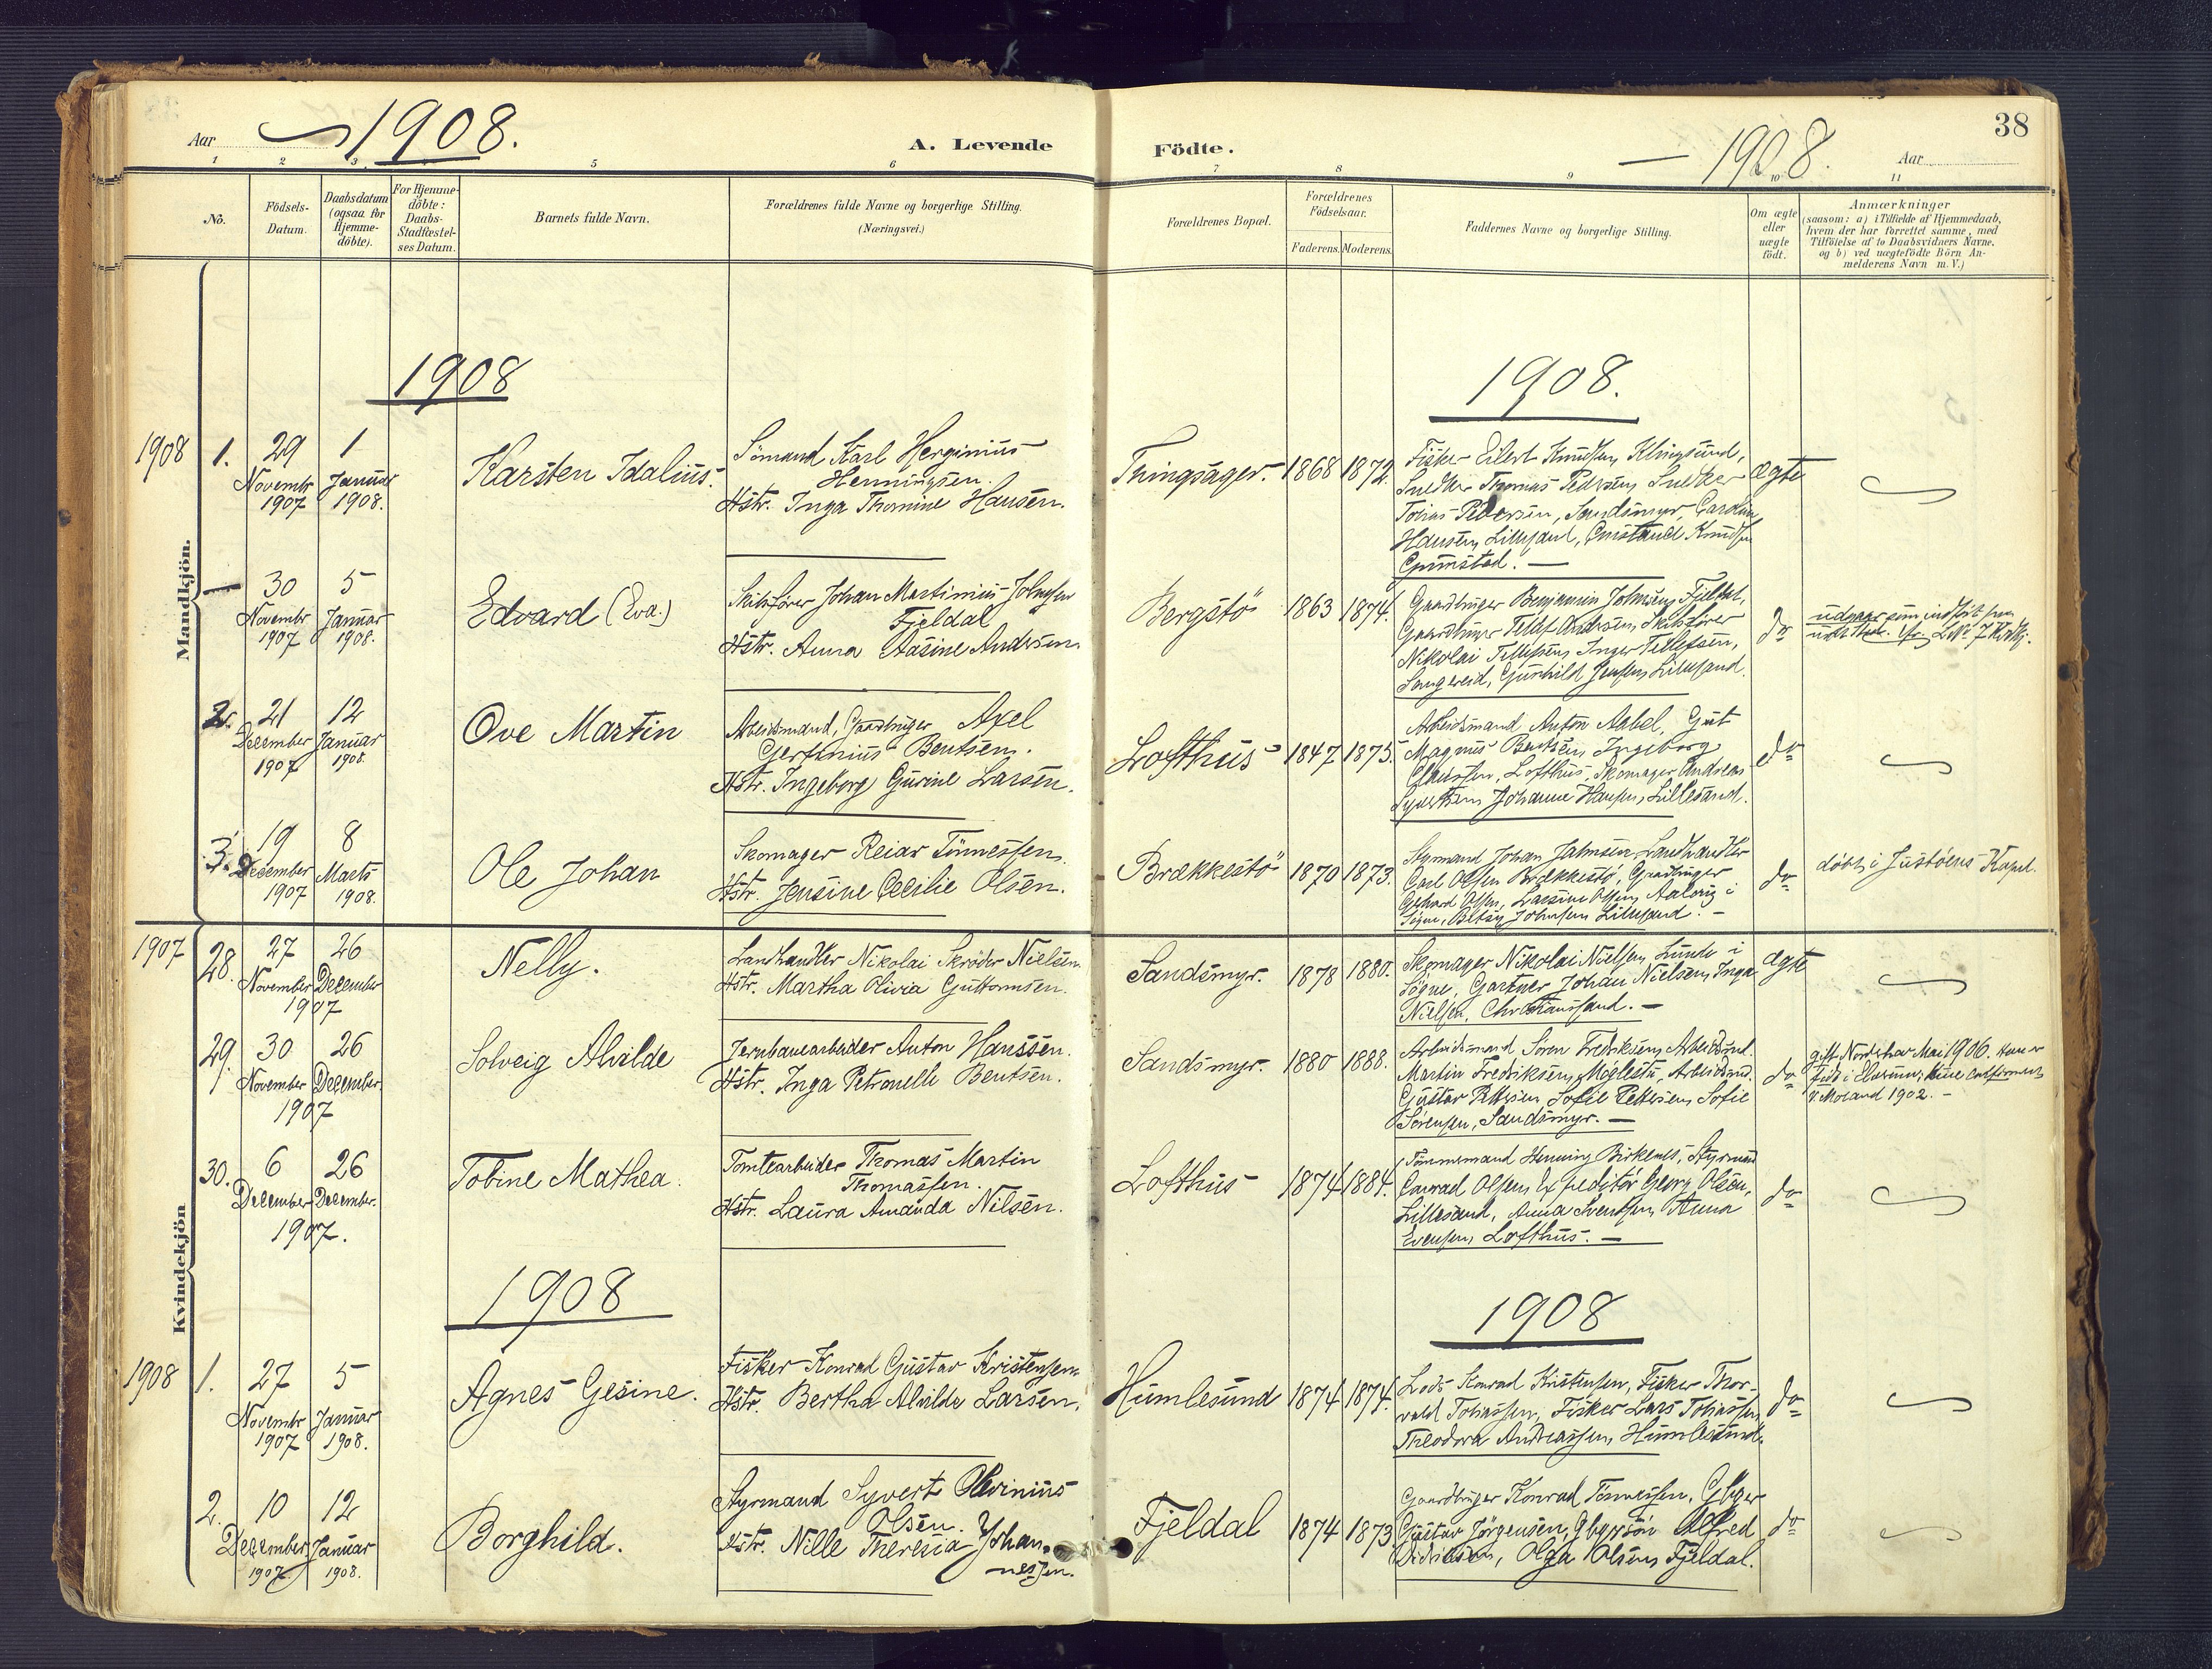 Aar 1908. A. Levende
Födte. — 1908. Aar 38
1 2 3 4 5 6 7 8 9 10 11
No.
Födsels-
Datum.
Daabsdatum
(ogsaa for
Hjemme-
döbte).
For Hjemme-
döbte:
Daabs-
Stadfæstel-
ses Datum.
Barnets fulde Navn.
Forældrenes fulde Navne og borgerlige Stilling.
(Næringsvei.)
Forældrenes Bopæl.
Forældrenes
Födselsaar.
Faderens. Moderens.
Faddernes Navne og borgerlige Stilling.
Om ægte
eller
uægte
födt.
Anmærkninger
(saasom: a) i Tilfælde af Hjemmedaab,
hvem der har forrettet samme, med
Tilföielse af to Daabsvidners Navne,
og b) ved uægtefödte Börn An-
melderens Navn m. V.)
Mandkjön.
1908
1908.
1908 1. 29 Novembr 1907
1 Januar 1908.
Karsten Idalius.
Sömand Karl Herginius
Henningsen.
Hstr. Inga Thomine Hansen.
Thingsager. 1868 1872.
Fisker Eilert Knudsen, Klingsund,
Snedker Thomas Pedersen, Snedker
Tobias Pedersen, Sandsmyr, Caroline
Hansen, Lillesand, Knudsen
Grimstad. —
ægte
— 30 Novembr 1907
5 Januar 1908.
Edvard (Eva.)
Skibsförer Johan Martinius Johnsen
Fjeldal
Hstr. Anna Aasine Andersen.
Bergstö 1863 1874.
Gaardbruger Benjamin Johnsen, Fjeldal,
Gaardbruger Tellef Andersen, Skibsförer
Nikolai Tellefsen, Inger Tellefsen,
Sangereid, Gunhild Jensen, Lillesand.
do
udgaar som indfört
2. 21 December 1907
12 Januar 1908.
Ove Martin
Arbeidsmand, Gaardbruger Axel
Bentsen.
Hstr. Ingeborg Gurine Larsen.
Lofthus 1847 1875.
Arbeidsmand Anton Aabel, Gut
Magnus Bentsen, Ingeborg
Lofthus, Skomager Andreas
Syvertsen, Johanne Hansen, Lillesand.
do
3. 19 December 1907
8 Marts 1908.
Ole Johan
Skomager Reiar Tönnessen.
Hstr. Jensine Cecilie Olsen.
Brækkestö 1870 1873.
Styrmand Johan Jahnsen, Landhandler
Carl Olsen Brækkestö, Gaardbruger
Gerhard Olsen, Larsine Olsen, i
Betsy Johnsen Lillesand. —
do
döbt i Justöens Kapel.
Kvindekjön
1907 28. 27 November
26 December
1907
Nelly.
Landhandler Nikolai Skröder Nielsen.
Hstr. Martha Olivia Guttormsen.
Sandsmyr. 1878 1880.
Skomager Nikolai Nielsen, Lunde i
Søgne, Gartner Johan Nielsen, Inga
Nielsen, Christianssand. —
ægte
29. 30 November
26 December.
1907
Solveig Alvilde
Jernbanearbeider Anton Hanssen.
Hstr. Inga Petronelle Bentsen.
Sandsmyr. 1880 1888.
Arbeidsmand Sören Fredriksen, Arbeidsmd.
Martin Fredriksen, Moglestu, Arbeidsmd.
Gustav Pettersen, Sofie Pettersen, Sofie
Sörensen, Sandsmyr. —
do
gift Mai 1906. Han er
födt i
V. Moland 1902. —
30. 6 December
26 December.
1907.
Tobine Mathea.
Tomtearbeider Thomas Martin
Thomassen.
Hstr. Laura Amanda Nilsen.
Lofthus 1874 1884.
Tömmermand Henning Birkenes, Styrmand
Conrad Olsen, Expeditör Georg Olsen,
Lillesand, Anna Svendsen, Anna
Evensen, Lofthus. —
do
1908
1908
1908 1. 27 Novembr 1907
5 Januar 1908.
Agnes Gesine.
Fisker Konrad Gustav Kristensen
Hstr. Bertha Alvilde Larsen.
Humlesund 1874 1874.
Lods Konrad Kristensen, Fisker Thor-
vald Tobiassen, Fisker Lars Tobiassen
Theodora Andreassen, Humlesund.
do
2. 10 December 1907.
12 Januar 1908.
Borghild.
Styrmand Syvert Olevinius
Olsen.
Hstr. Nille Theresia Johan-
nessen.
Fjeldal 1874 1873
Gaardbruger Konrad Tönnessen, Gbger
Gustav Jörgensen, Alfred
Olga Olsen, Fjeldal.
do